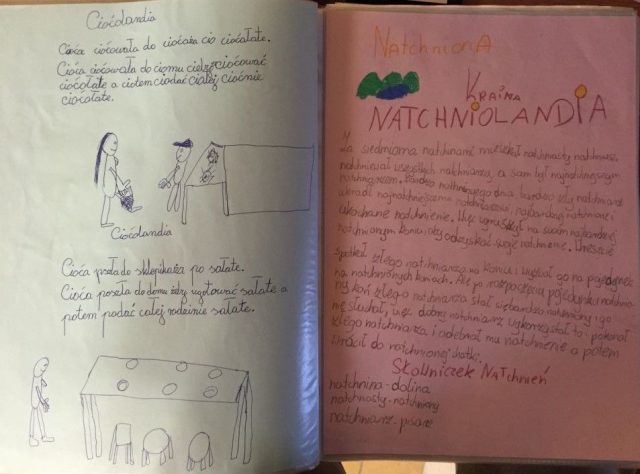 Ciocolandia
Ciocia ciociowała do ciociaża cio ciociałate.
Ciocia ciociowała do ciomu cieby ciociować
ciociołate a ciotem ciodać ciałej ciośnie
ciociałate.
Ciocolandia
Ciocia poszła do sklepikaża po sałate.
Ciocia poszła do domu żeby ugotować sałate a
potem podać całej rodzinie sałate.
NatchnionA
KRAiNA
NATCHNIOLANDIA
Za siedmioma natchninami mieszkał natchniasty natchniarz,
natchniewał wszystkich natchniarzy, a sam był najnatchnieńszym
natchniarzem. Pewnego natchnionego dnia bardzo zły natchniarz
ukradł najnatchnieńszemu natchniarzowi najbardziej natchnione i
ukochane natchnienie. Więc wyruszył na swoim najbardziej
natchnionym koniu, aby odzyskać swoje natchnienie. Wreszcie
spotkał złego natchniarza na koniu i wyzwał go na pojedynek
na natchnionych koniach. Ale po rozpoczęciu pojedynku natchnio-
ny koń złego natchniarza stał się bardzo natchniony i go
nie słuchał, więc dobry natchniarz wykorzystał to i pokonał
złego natchniarza i odebrał mu natchnienie a potem
wrócił do natchnionej chatki.
SŁOWNICZEK NATCHNIEŃ
natchnina - dolina
natchniasty - natchniony
natchniarz - pisarz